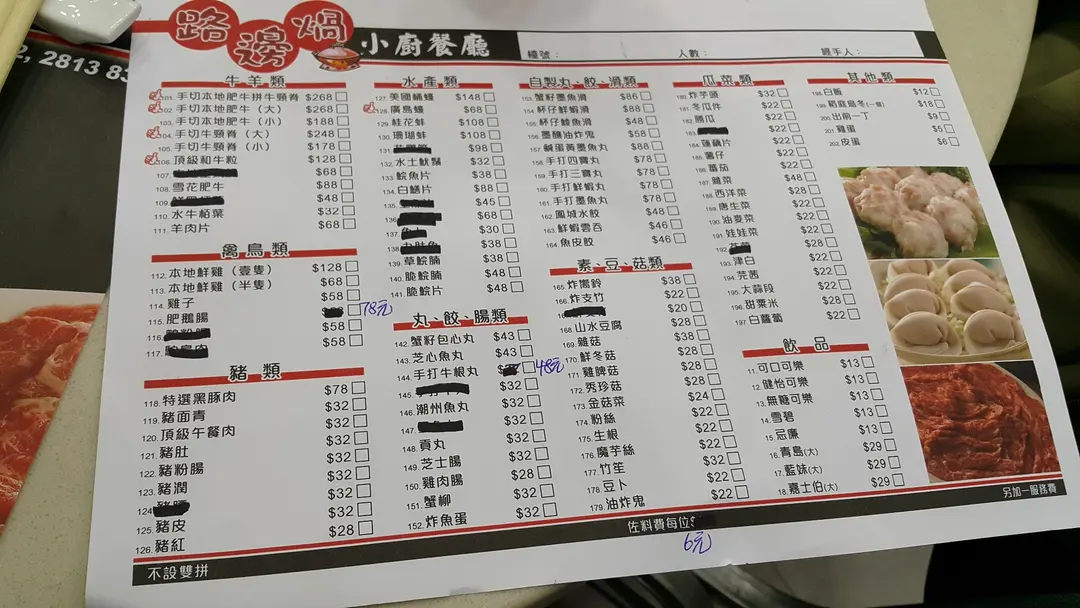 路邊煱 小廚餐廳
檯號： 人數： 經手人：
2, 2813 83
牛羊類
101. 手切本地肥牛拼牛頸脊 $268
102. 手切本地肥牛（大） $268
103. 手切本地肥牛（小） $188
104. 手切牛頸脊（大） $248
105. 手切牛頸脊（小） $178
106. 頂級和牛粒 $128
107. $68
108. 雪花肥牛 $88
109. $48
110. 水牛栢葉 $32
111. 羊肉片 $68
禽鳥類
112. 本地鮮雞（壹隻） $128
113. 本地鮮雞（半隻） $68
114. 雞子 $58
115. 肥鵝腸 78元
116. $58
117. $58
豬類
118. 特選黑豚肉 $78
119. 豬面青 $32
120. 頂級午餐肉 $32
121. 豬肚 $32
122. 豬粉腸 $32
123. 豬潤 $32
124. $32
125. 豬皮 $32
126. 豬紅 $28
水產類
127. 美國桶蠔 $148
128. 廣島蠔 $68
129. 桂花蚌 $108
130. 珊瑚蚌 $108
131. $98
132. 水士魷鬚 $32
133. 鯇魚片 $38
134. 白鱔片 $88
135. $45
136. $68
137. $30
138. $38
139. 草鯇腩 $38
140. 脆鯇腩 $48
141. 脆鯇片 $48
丸、餃、腸類
142. 蟹籽包心丸 $43
143. 芝心魚丸 $43
144. 手打牛根丸 48元
145. $32
146. 潮州魚丸 $32
147. $32
148. 貢丸 $32
149. 芝士腸 $32
150. 雞肉腸 $28
151. 蟹柳 $32
152. 炸魚蛋 $32
自製丸、餃、滑類
153. 蟹籽墨魚滑 $86
154. 杯仔鮮蝦滑 $88
155. 杯仔鯪魚滑 $48
156. 墨醶油炸鬼 $58
157. 鹹蛋黃墨魚丸 $88
158. 手打四寶丸 $78
159. 手打三寶丸 $78
160. 手打鮮蝦丸 $78
161. 手打墨魚丸 $78
162. 鳳城水餃 $48
163. 鮮蝦雲吞 $46
164. 魚皮餃 $46
素、豆、菇類
165. 炸嚮鈴 $38
166. 炸支竹 $22
167. $20
168. 山水豆腐 $28
169. 雜菇 $38
170. 鮮冬菇 $28
171. 雞脾菇 $28
172. 秀珍菇 $28
173. 金菇菜 $24
174. 粉絲 $22
175. 生根 $22
176. 魔芋絲 $22
177. 竹笙 $32
178. 豆卜 $22
179. 油炸鬼 $22
瓜菜類
180. 炸芋頭 $32
181. 冬瓜件 $22
182. 勝瓜 $22
183. $22
184. 蓮藕片 $22
185. 薯仔 $22
186. 蕃茄 $22
187. 雜菜 $48
188. 西洋菜 $28
189. 唐生菜 $22
190. 油麥菜 $22
191. 娃娃菜 $22
192. $28
193. 津白 $22
194. 芫茜 $22
195. 大蒜段 $22
196. 甜粟米 $28
197. 白蘿蔔 $22
飲品
11. 可口可樂 $13
12. 健怡可樂 $13
13. 無糖可樂 $13
14. 雪碧 $13
15. 忌廉 $13
16. 青島(大) $29
17. 藍妹(大) $29
18. 嘉士伯(大) $29
其他類
198. 白飯 $12
199. 稻庭烏冬(一窩) $18
200. 出前一丁 $9
201. 雞蛋 $5
202. 皮蛋 $6
不設雙拼
佐料費每位$
6元
另加一服務費